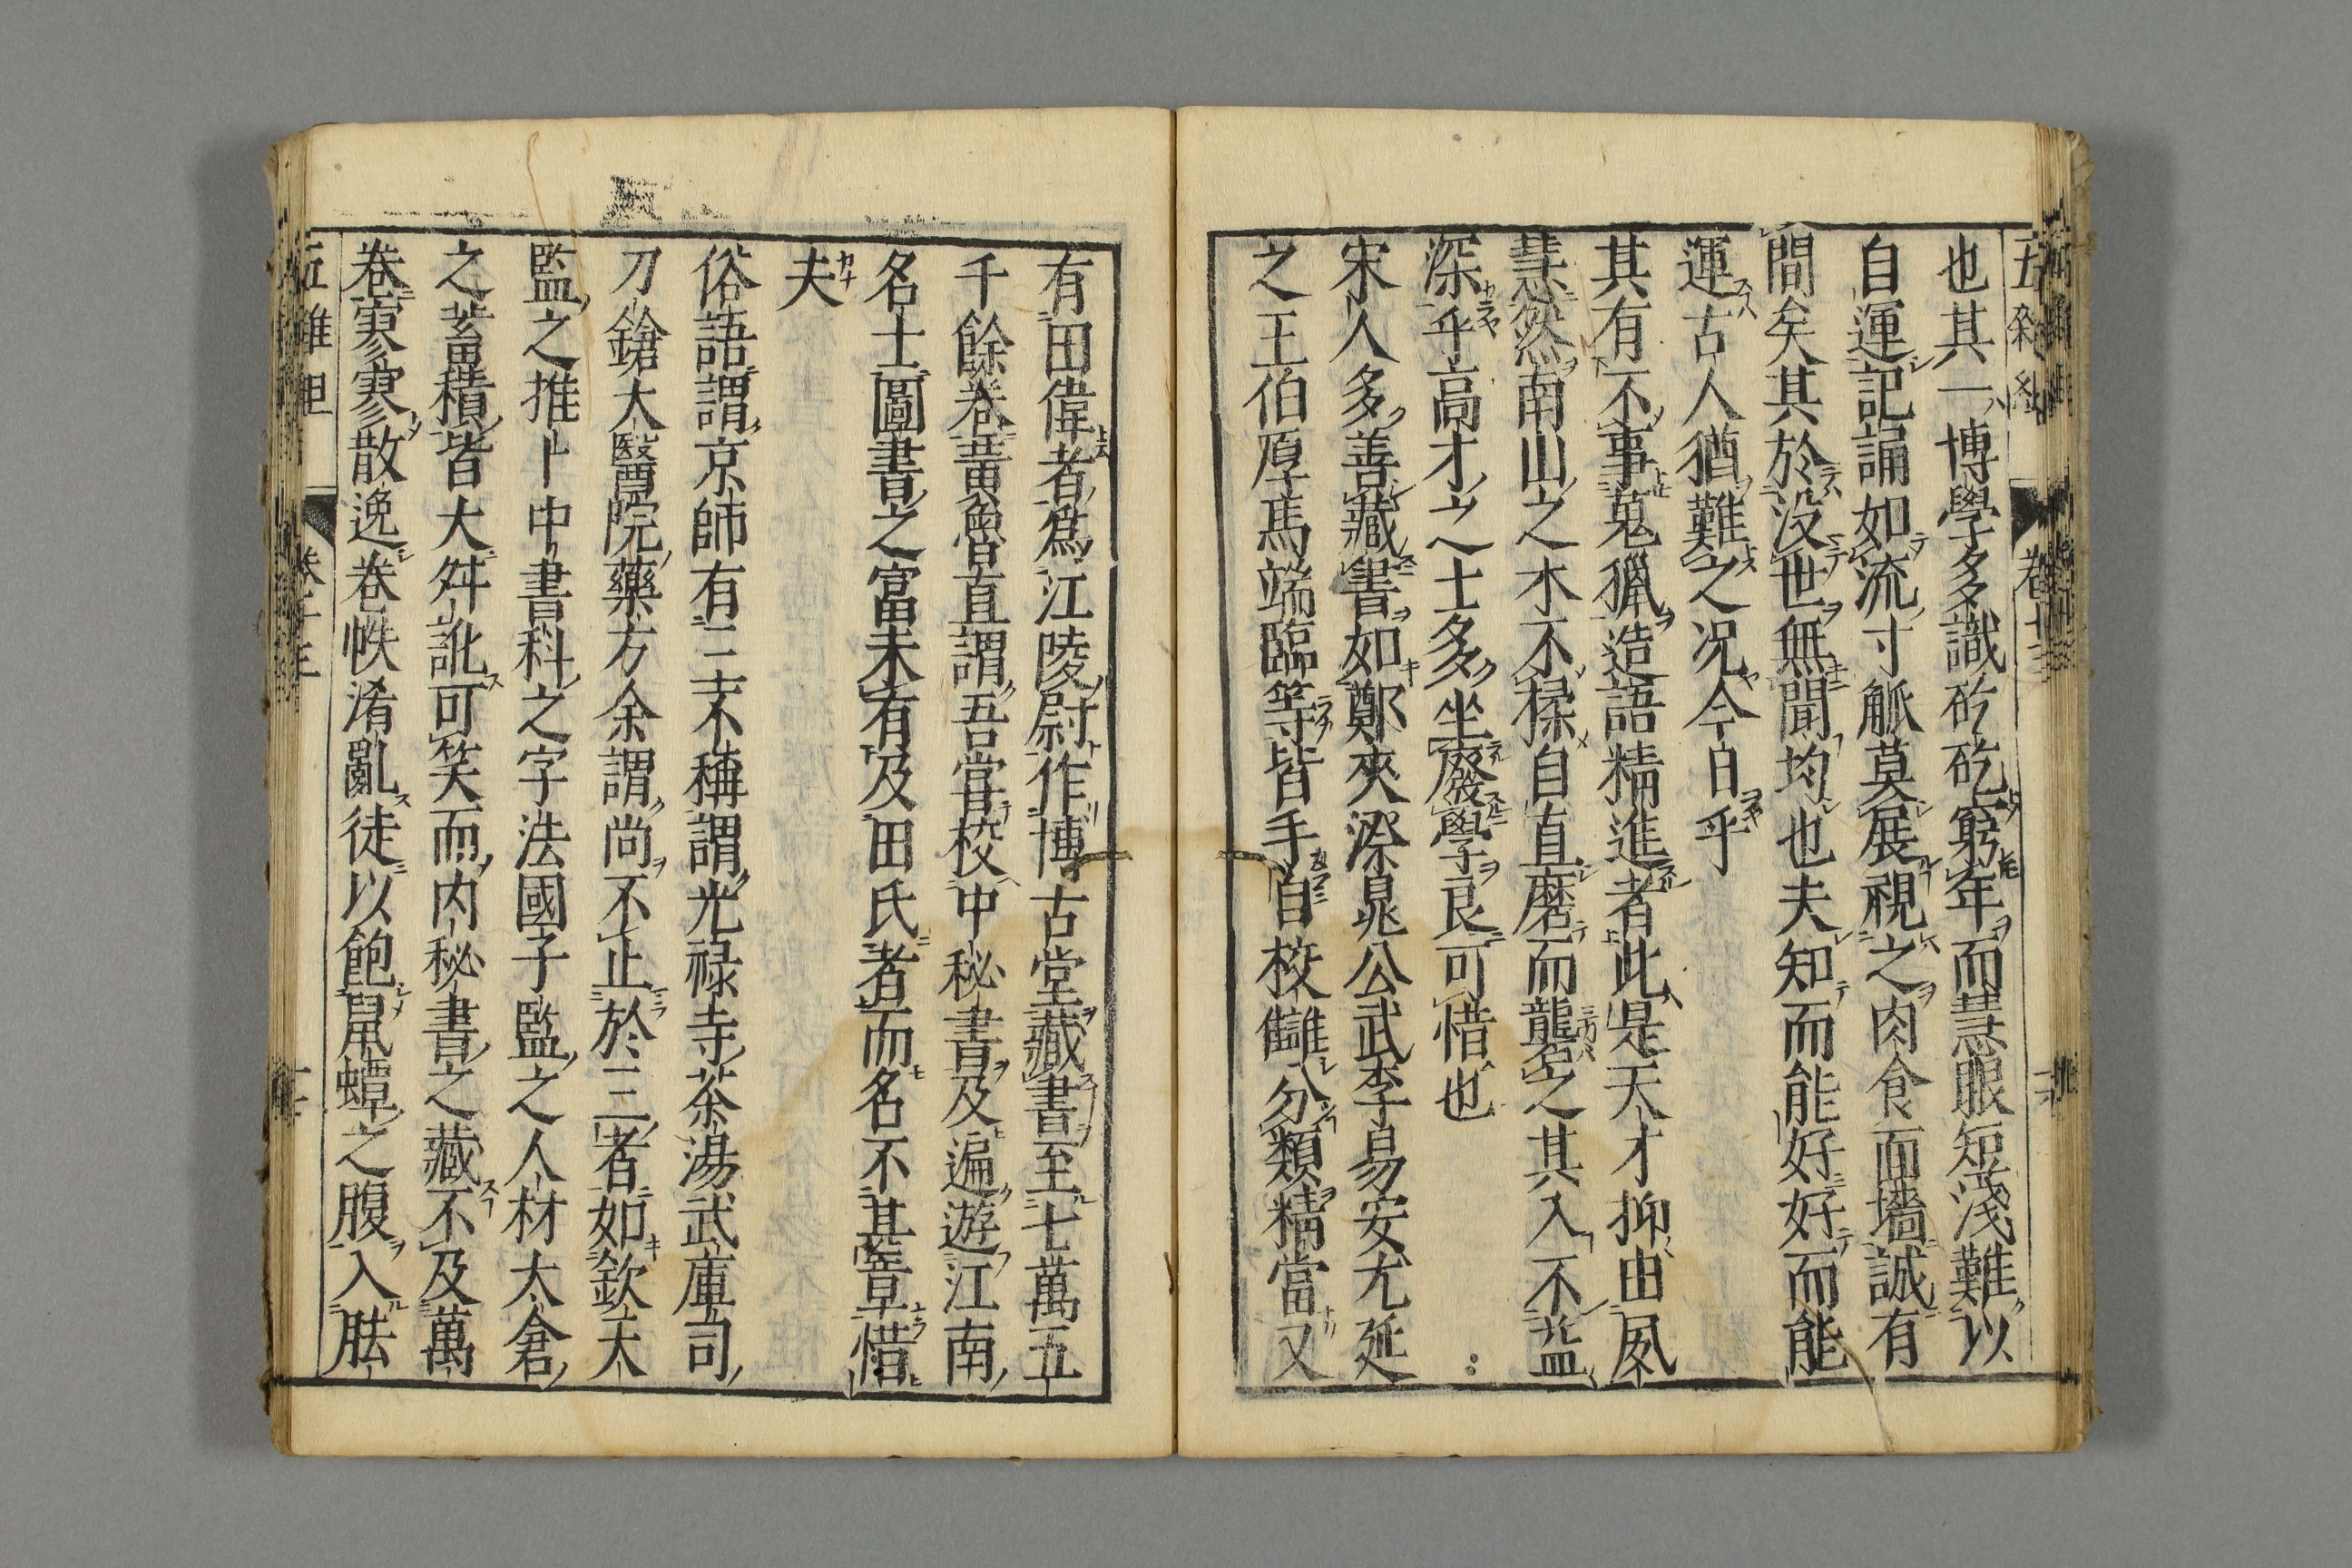 五雜組 卷十三
也其一博學多識矻矻窮年而慧眼短淺難以
自運記誦如流寸觚莫展視之肉食面墻誠有
間矣其於没世無聞均也夫知而能好好而能
運古人猶難之况今日乎
其有不事蒐獵造語精進者此是天才抑由夙
慧然南山之木不揉自直磨而礱之其入不益
深乎高才之士多坐廢學良可惜也
宋人多善藏書如鄭夾漈晁公武李易安尤延
之王伯厚馬端臨等皆手自校讎分類精當又
有田偉者爲江陵尉作博古堂藏書至七萬五
千餘卷黃魯直謂吾嘗校中秘書及遍遊江南
名士圖書之富未有及田氏者而名不甚章惜
夫
俗語謂京師有三不稱謂光禄寺茶湯武庫司
刀鎗太醫院藥方余謂尚不止於三者如欽天
監之推卜中書科之字法國子監之人材太倉
之蓄積皆大舛訛可笑而内秘書之藏不及萬
卷寥寥散逸卷帙淆亂徒以飽鼠蟫之腹入胠